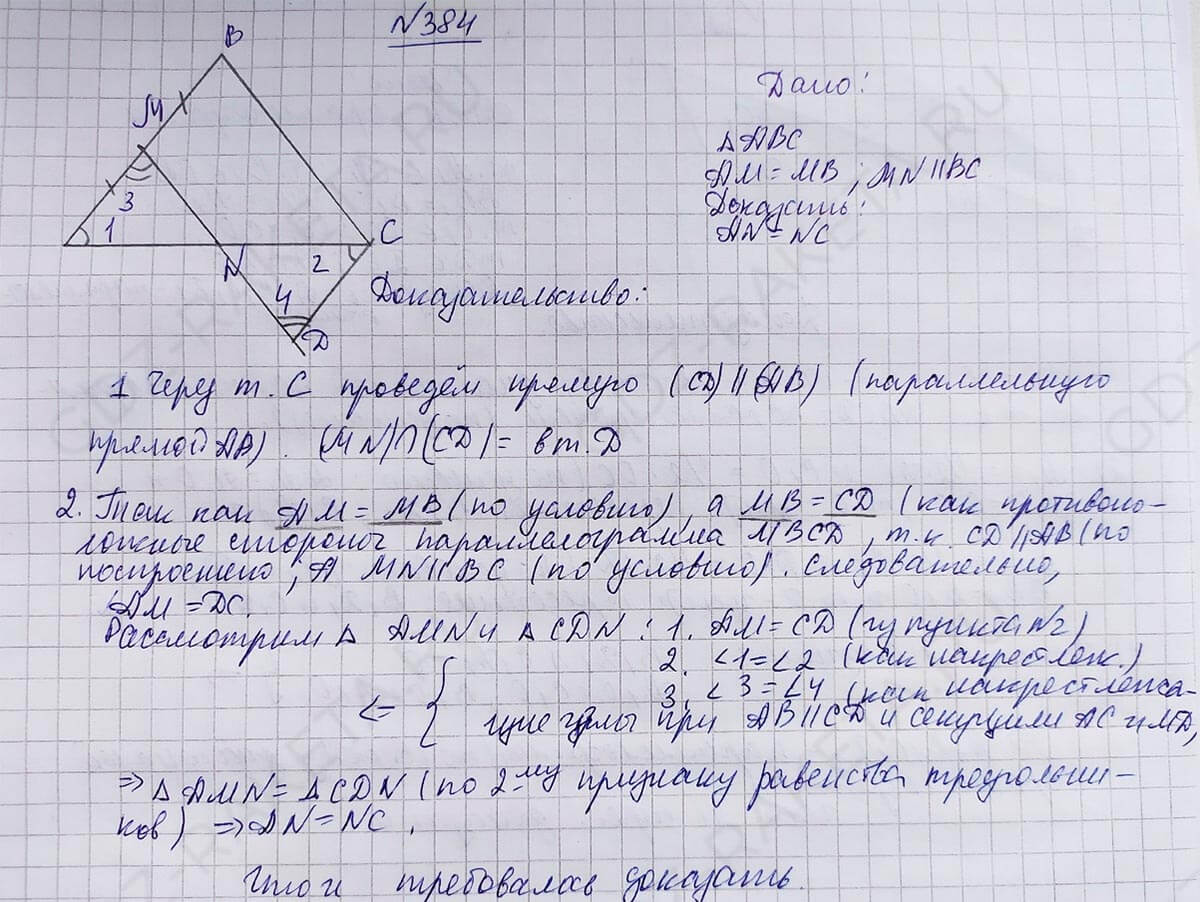 №384
B
M
3
1
N
2
C
4
D
Дано:
△ ABC
AM = MB ; MN || BC
Доказать:
AN = NC
Доказательство:
1 Через т. C проведём прямую (CD) || (AB) (параллельную
прямой AB). (MN)∩(CD) = в т. D
2. Так как AM = MB (по условию), а MB = CD (как противопо-
ложные стороны параллелограмма MBCD, т.к. CD || AB (по
построению, а MN || BC (по условию). Следовательно,
AM = DC.
Рассмотрим △ AMN и △ CDN : 1. AM = CD (из пункта №2)
2. <1 = <2 (как накрестлеж.)
3. <3 = <4 (как накрестлежа-
<= { щие углы при AB || CD и секущими AC и MD,
=> △ AMN = △ CDN (по 2-му признаку равенства треугольни-
ков) => AN = NC .
Что и требовалось доказать.